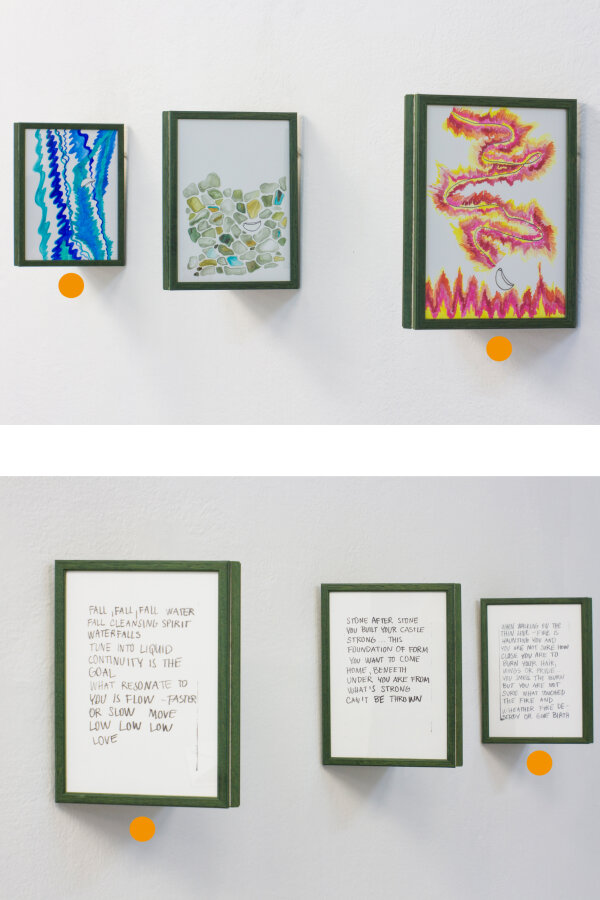 FALL, FALL, FALL WATER
FALL CLEANSING SPIRIT
WATERFALLS
TUNE INTO LIQUID
CONTINUITY IS THE
GOAL
WHAT RESONATE TO
YOU IS FLOW – FASTER
OR SLOW MOVE
LOW LOW LOW
LOVE
STONE AFTER STONE
YOU BUILT YOUR CASTLE
STRONG... THIS
FOUNDATION OF FORM
YOU WANT TO COME
HOME, BENEETH
UNDER YOU ARE FROM
WHAT'S STRONG
CAN'T BE THROWN
WHEN WALKING ON THE
THIN LINE – FIRE IS
HAUNTING YOU AND
YOU ARE NOT SURE HOW
CLOSE YOU ARE TO
BURN YOUR HAIR,
WINGS OR PRIDE
YOU SMELL THE BURN
BUT YOU ARE NOT
SURE WHAT TOUCHED
THE FIRE AND
DE-
STROY OR GIVE BIRTH